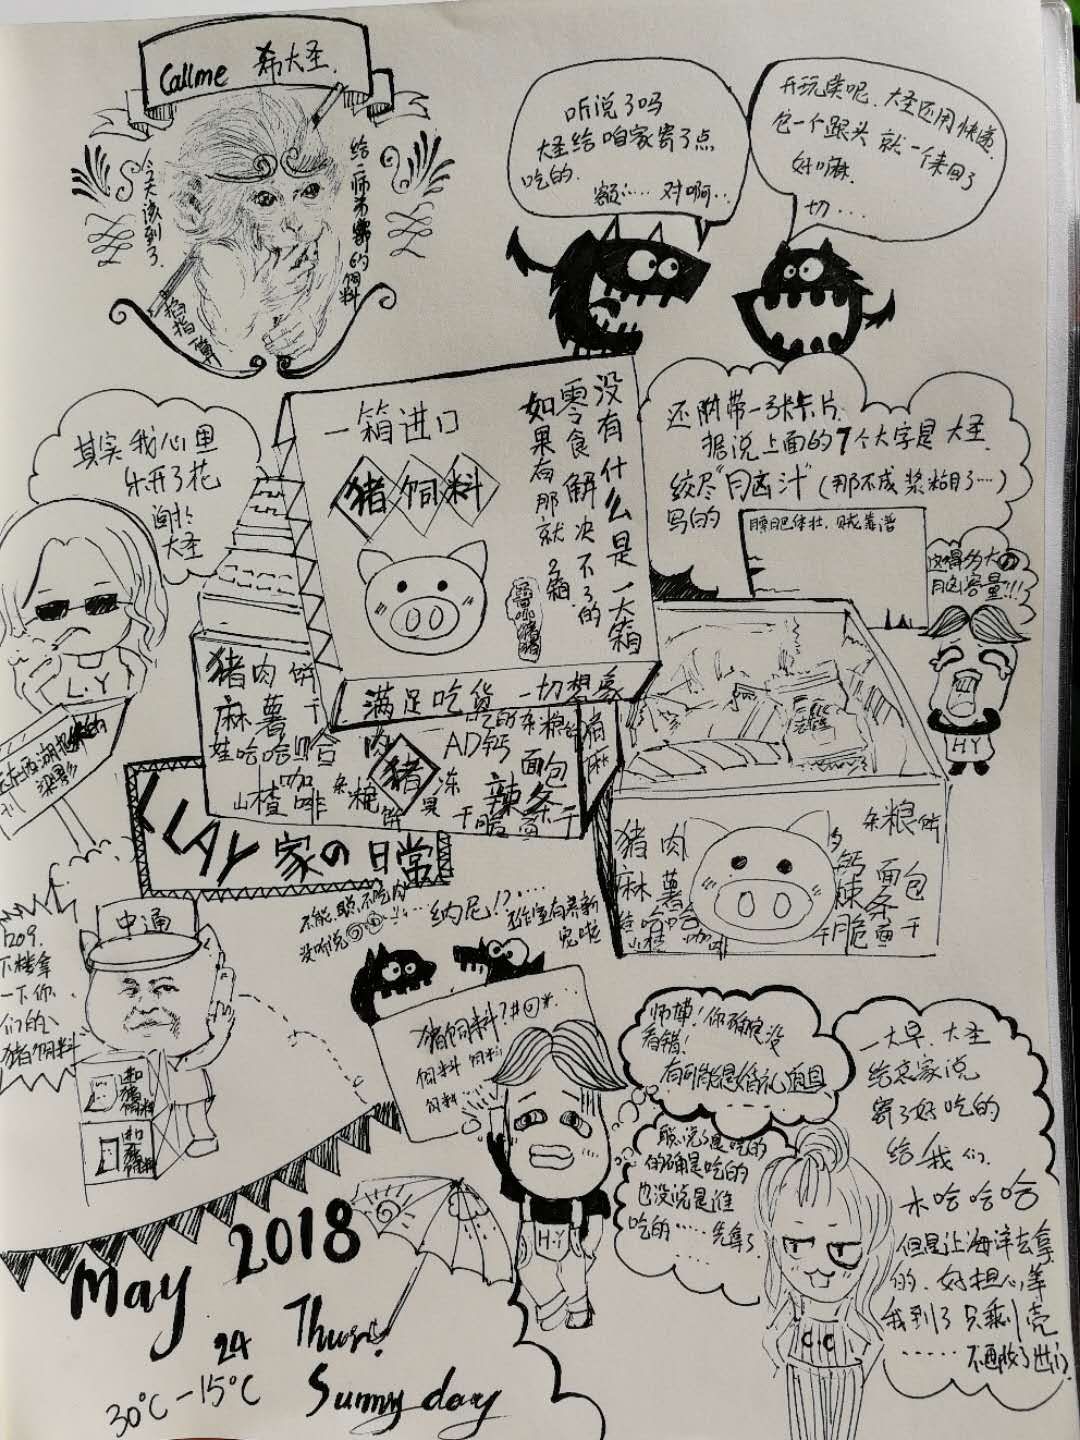 Callme 希大圣.
今天该到了.
给二师弟寄的饲料
听说了吗
大圣给咱家寄了点
吃的.
额…… 对啊…
开玩笑呢.大圣还用快递.
包一个跟头 就一个来回了
好嘛.
切...
其实我心里
乐开了花
大圣
L.Y
一箱进口
猪饲料
没有什么是一大箱
零食解决不了的
如果有那就2箱.
满足吃货 一切想象
猪肉饼干
麻薯
娃哈哈
山楂
咖啡
杂粮饼
猪
AD钙
面包
辣条
干脆面
还附带一张卡片.
据说上面的7个大字是 大圣.
绞尽"月凶汁"(那不成浆糊了…)
写的
膘肥体壮.
HY
KLAY家の日常
猪肉
麻薯
娃哈哈
山楂
咖啡
杂粮饼
钙
面包
辣条
干脆面
中通
1209.
下楼拿
一下你
们的
猪饲料
不能.
没听说
纳尼!?......
猪饲料?#@*...
饲料 饲料
饲料…
H.Y
师博!你确定没
看错!
有可能是婚礼道具
听说了是吃的
的确是吃的
也没说是谁
吃的……先拿了
C.C
一大早.大圣
给总家说
寄了好吃的
给我们.
木哈哈哈
但是让海洋去拿
的.好担心等
我到了只剩壳
May 2018
24 Thurs.
30℃-15℃ Sunny day